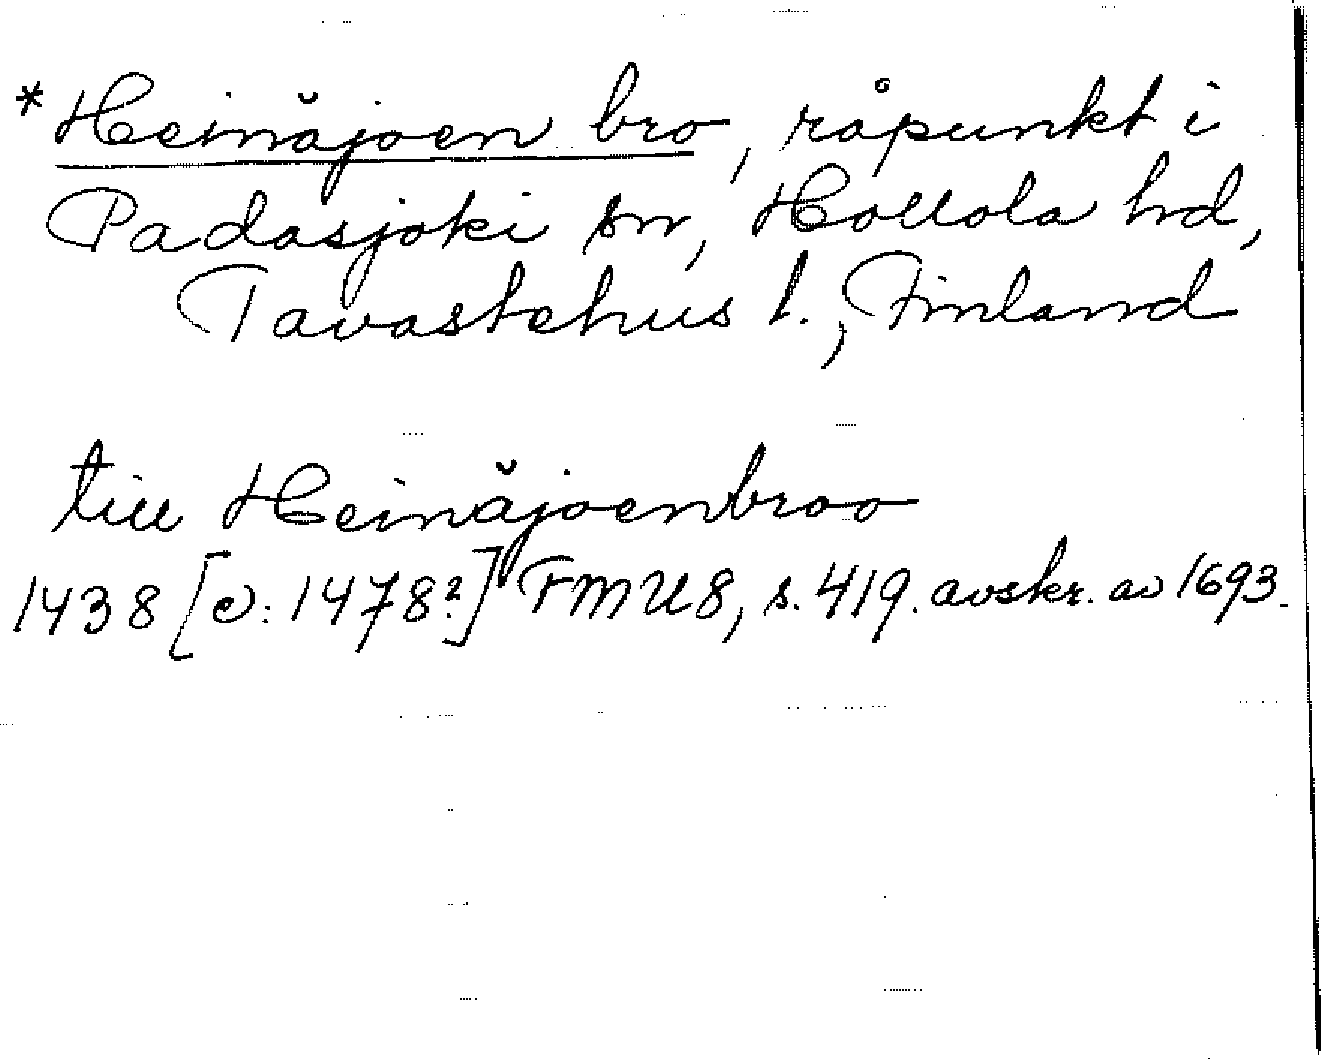 *Heinäjoen bro, råpunkt i
Padasjoki sn, Hollola hd,
Tavastehus l., Finland
till Heinäjoenbroo
1438 [ɔ: 1478?] FMU 8, s. 419. avskr. av 1693.